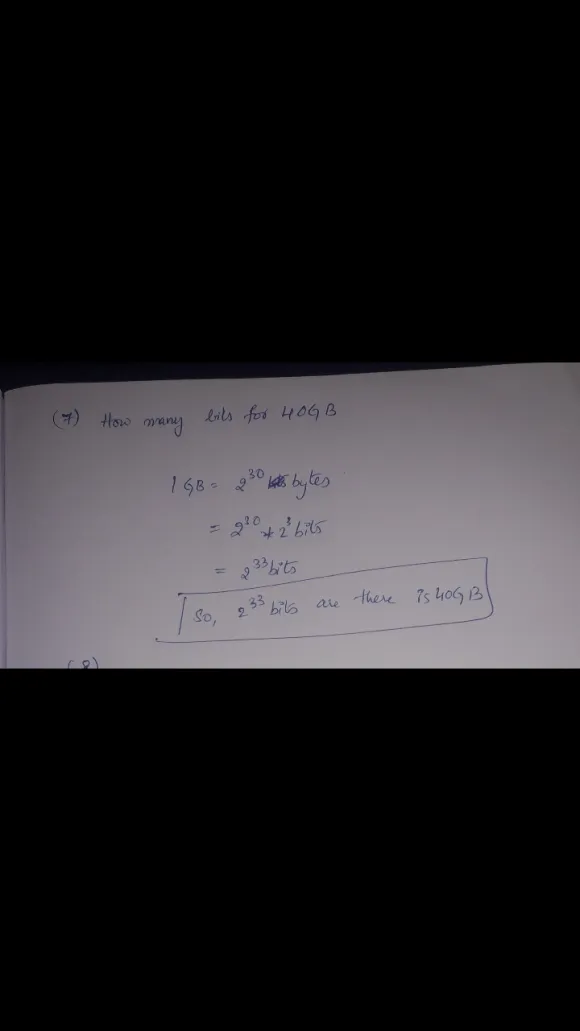 (7) How many bits for 40GB
1 GB = 2^30 bytes
= 2^30 * 2^3 bits
= 2^33 bits
So, 2^33 bits are there is 40GB
(8)